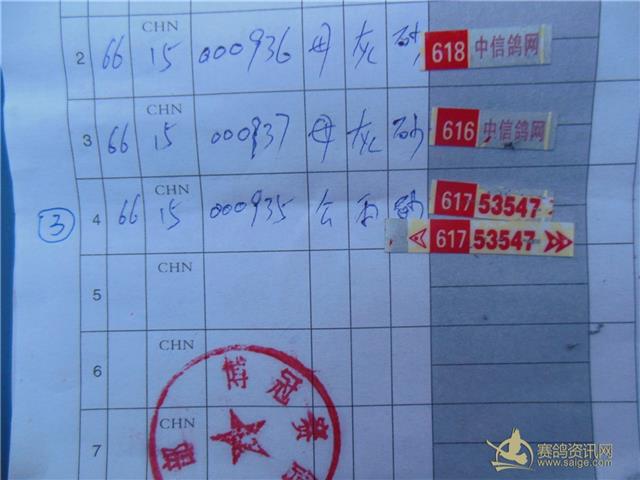 2 66 CHN 15 000936 母 灰 砂 618 中信鸽网
3 66 CHN 15 000937 母 灰 砂 616 中信鸽网
③ 4 66 CHN 15 000935 公 雨 砂 617 53547
617 53547
5 CHN
6 CHN
7 CHN
冠 赛
赛鸽资讯网
www.saige.com